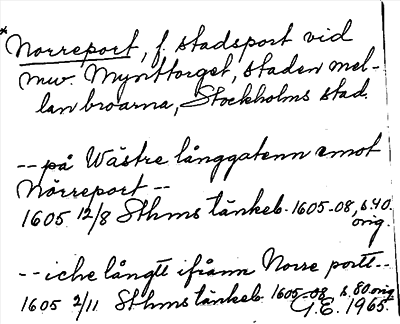 * Norreport, f. stadsport vid
nuv. Mynttorget, staden mel-
lan broarna, Stockholms stad.
-- på Wästre långgatenn emot
Nörreport --
1605 12/8 Sthms tänkeb. 1605-08, s. 40.
orig.
-- iche långtt ifrånn Norre portt --
1605 2/11 Sthms tänkeb. 1605-08 s. 80 orig
G.E. 1965.